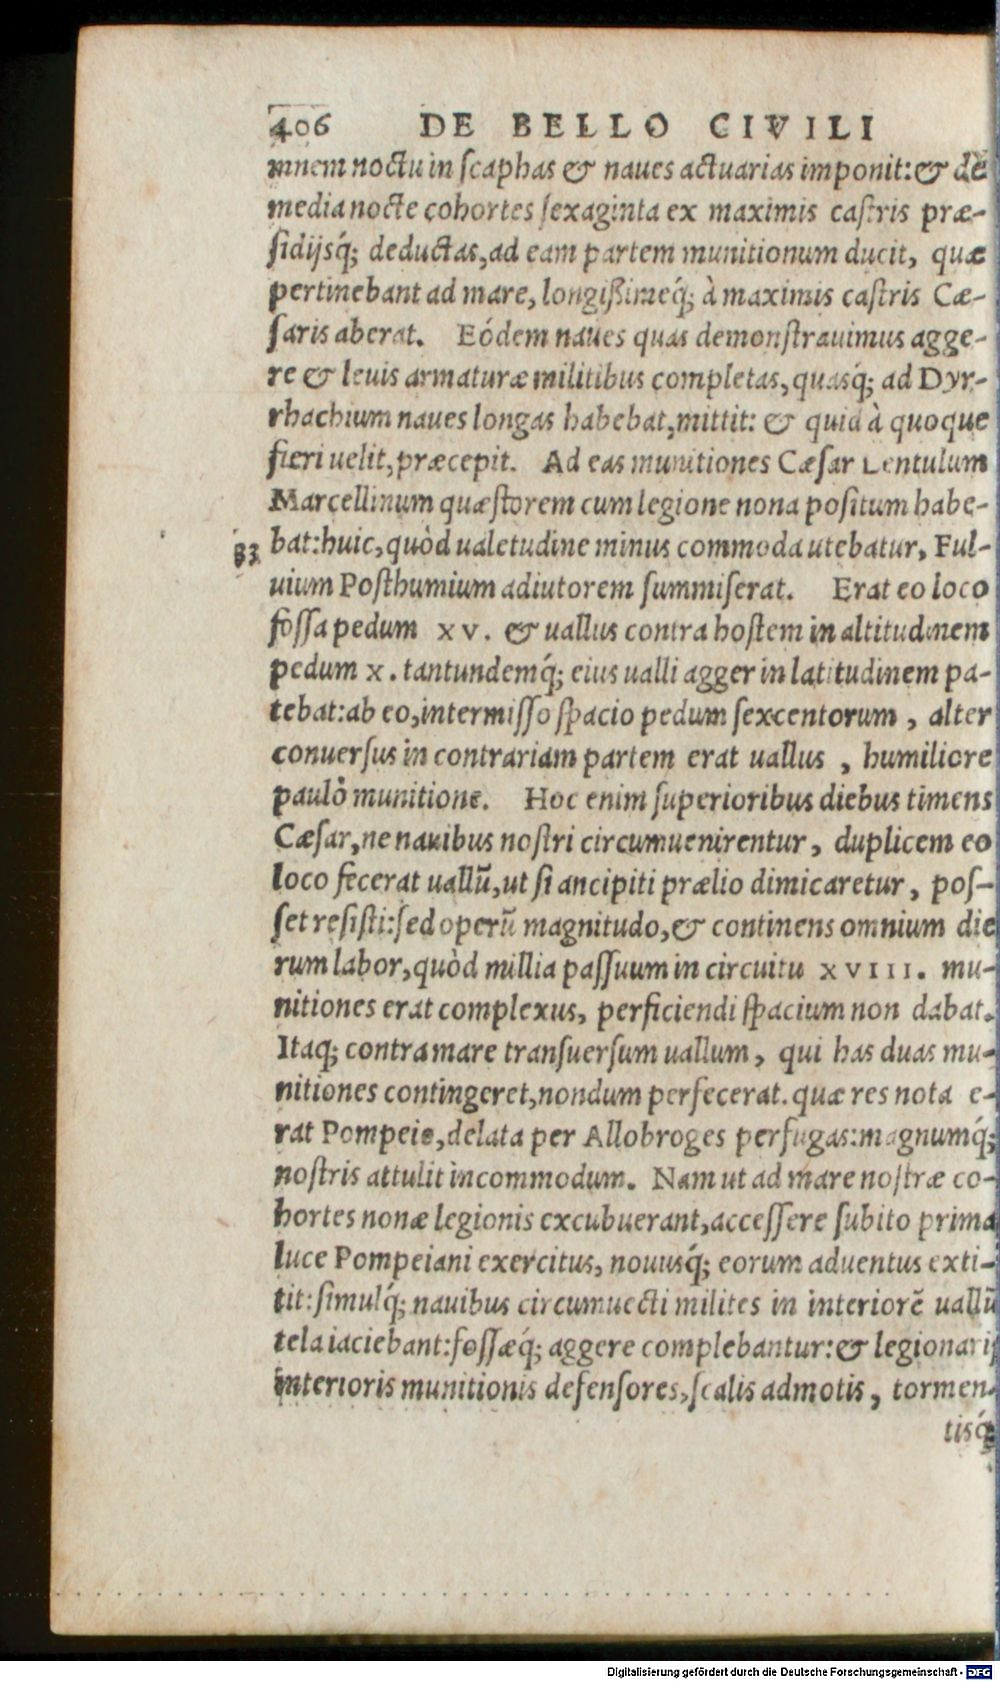 406 DE BELLO CIVILI
mnem noctu in ſcaphas & naues actuarias imponit:& de
media nocte cohortes ſexaginta ex maximis caſtris præ-
ſidijsq́; deductas,ad eam partem munitionum ducit, quæ
pertinebant ad mare, longißimeq́; à maximis caſtris Cæ-
ſaris aberat. Eódem naues quas demonſtrauimus agge-
re & leuis armaturæ militibus completas,quasq́; ad Dyr-
rhachium naues longas habebat,mittit: & quid à quoque
fieri uelit,præcepit. Ad eas munitiones Cæſar Lentulum
Marcellinum quæſtorem cum legione nona poſitum habe-
83 bat:huic,quòd ualetudine minus commoda utebatur, Ful-
uium Poſthumium adiutorem ſummiſerat. Erat eo loco
foſſa pedum xv. & uallus contra hoſtem in altitudinem
pedum x. tantundemq́; eius ualli agger in latitudinem pa-
tebat:ab eo,intermiſſo ſpacio pedum ſexcentorum, alter
conuerſus in contrariam partem erat uallus, humiliore
paulò munitione. Hoc enim ſuperioribus diebus timens
Cæſar,ne nauibus noſtri circumuenirentur, duplicem eo
loco fecerat uallũ,ut ſi ancipiti prælio dimicaretur, poſ-
ſet reſiſti:ſed operũ magnitudo,& continens omnium die
rum labor,quòd millia paſſuum in circuitu xviii. mu-
nitiones erat complexus, perficiendi ſpacium non dabat.
Itaq; contra mare tranſuerſum uallum, qui has duas mu-
nitiones contingeret,nondum perfecerat. quæ res nota e-
rat Pompeio,delata per Allobroges perfugas:magnumq́;
noſtris attulit incommodum. Nam ut ad mare noſtræ co-
hortes nonæ legionis excubuerant,acceſſere ſubito prima
luce Pompeiani exercitus, nouusq́; eorum aduentus exti-
tit:ſimulq́; nauibus circumuecti milites in interiorẽ uallũ
tela iaciebant:foſſæq́; aggere complebantur:& legionarij
interioris munitionis defenſores,ſcalis admotis, tormen-
tisq́;
Digitalisierung gefördert durch die Deutsche Forschungsgemeinschaft - DFG